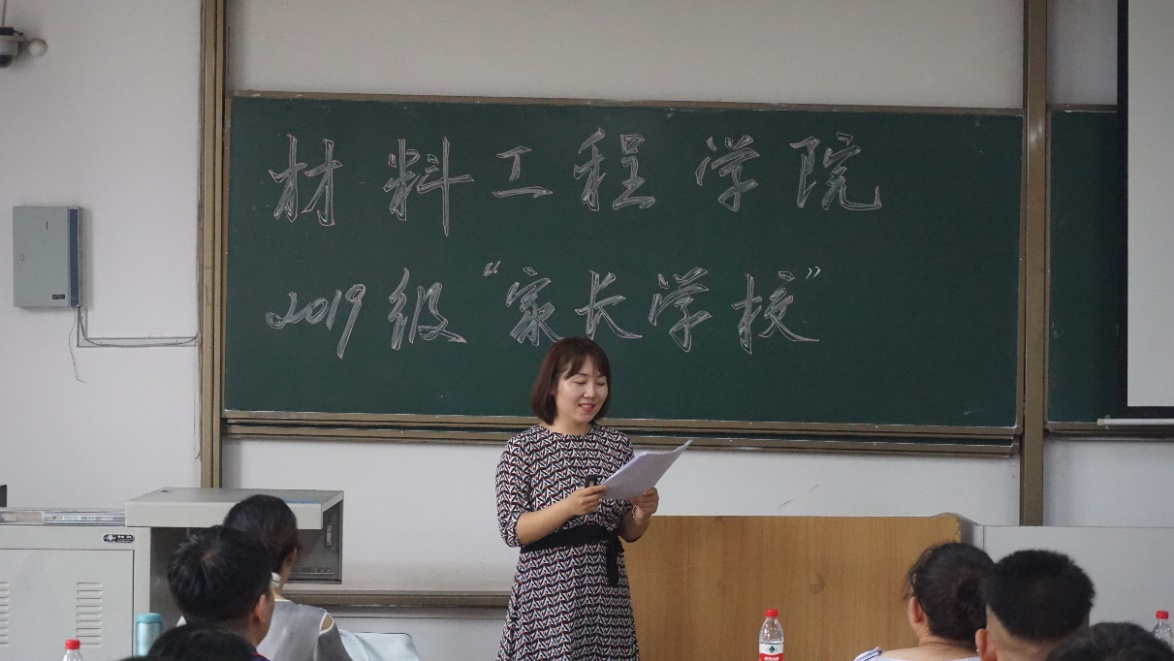 材料工程学院
2019级“家长学校”